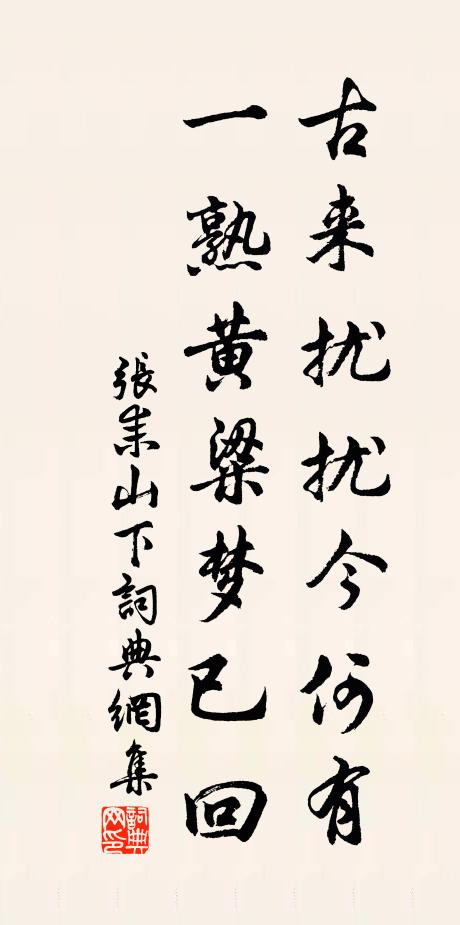 古来扰扰今何有
一熟黄粱梦已回
張耒山下詞典網集
詞典網印